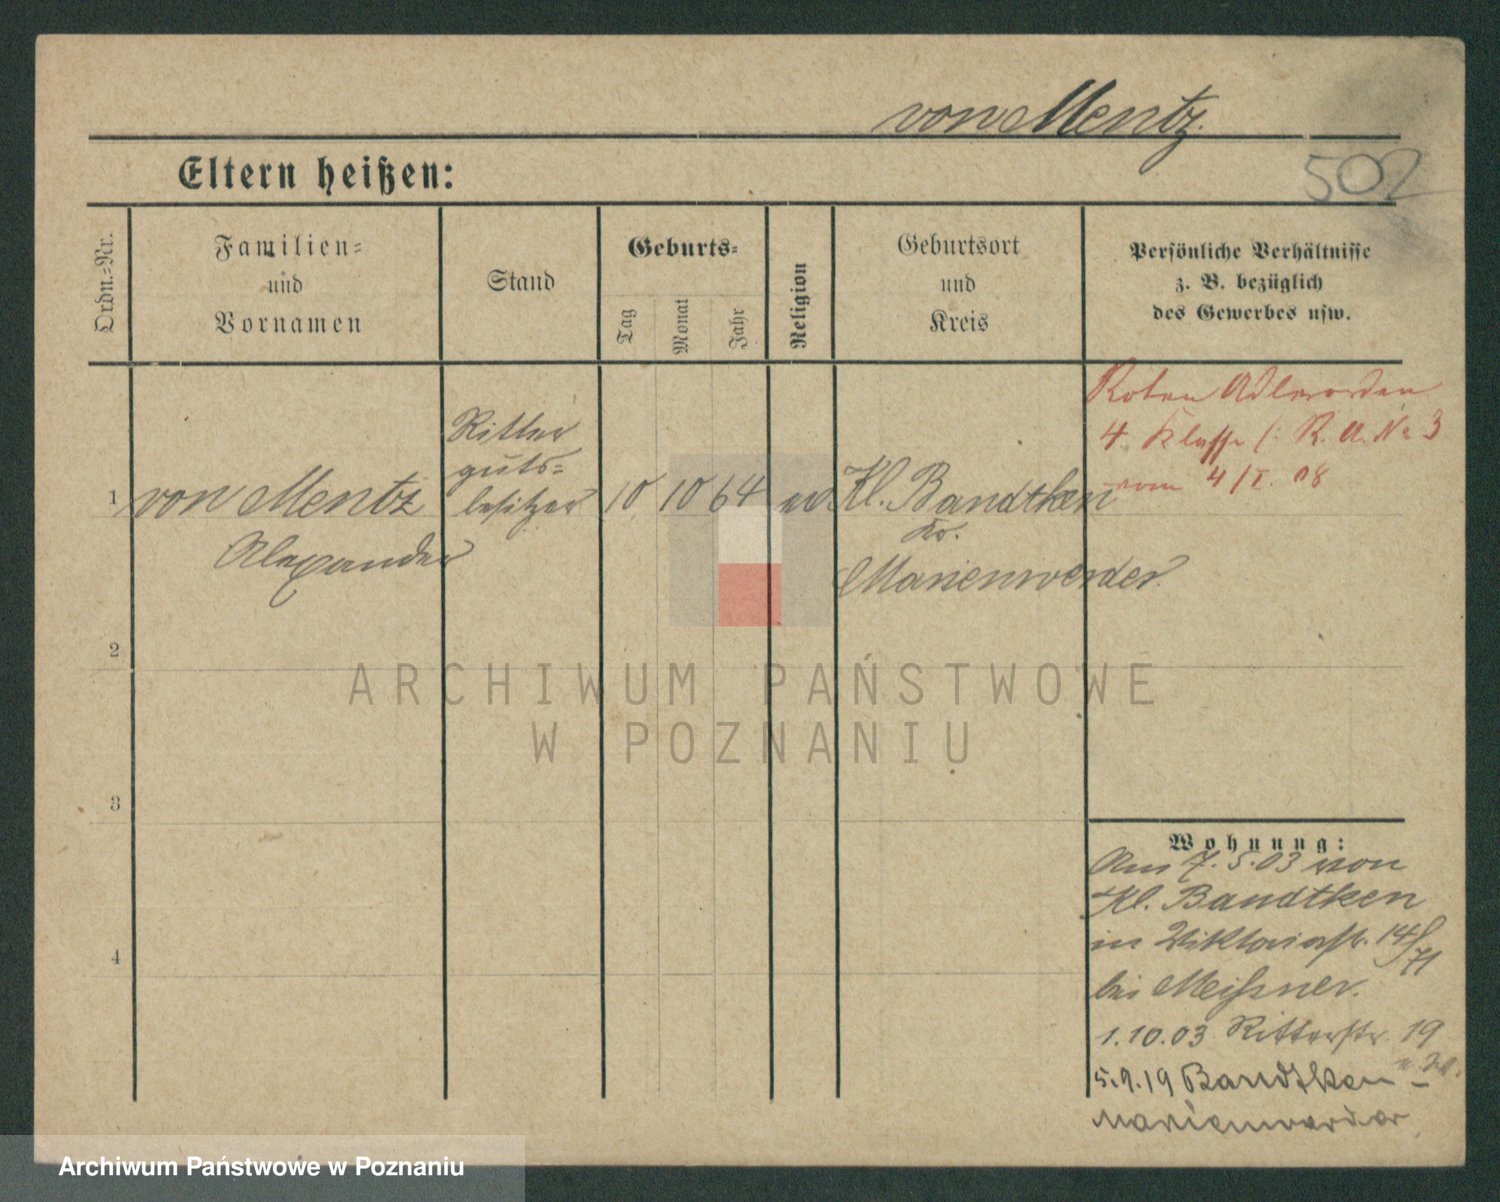 von Mentz.
502
Eltern heißen:
Ordn.=Nr.
Familien=
und
Vornamen
Stand
Geburts=
Tag
Monat
Jahr
Religion
Geburtsort
und
Kreis
Persönliche Verhältnisse
z. B. bezüglich
des Gewerbes usw.
Roten Adlerorden
4. Klasse (: R. A. № 3
vom 4/I. 08
1
von Mentz
Alexander
Ritter
guts=
besitzer
10
10
64
ev.
Kl. Bandtken
Kr.
Marienwerder.
2
3
4
Wohnung:
Am 7.5.03 von
Kl. Bandtken
in Viktoriastr. 14
bei Meißner.
1.10.03 Ritterstr. 19
5.9.19 Bandtken –
Marienwerder
ARCHIWUM PAŃSTWOWE
W POZNANIU
Archiwum Państwowe w Poznaniu